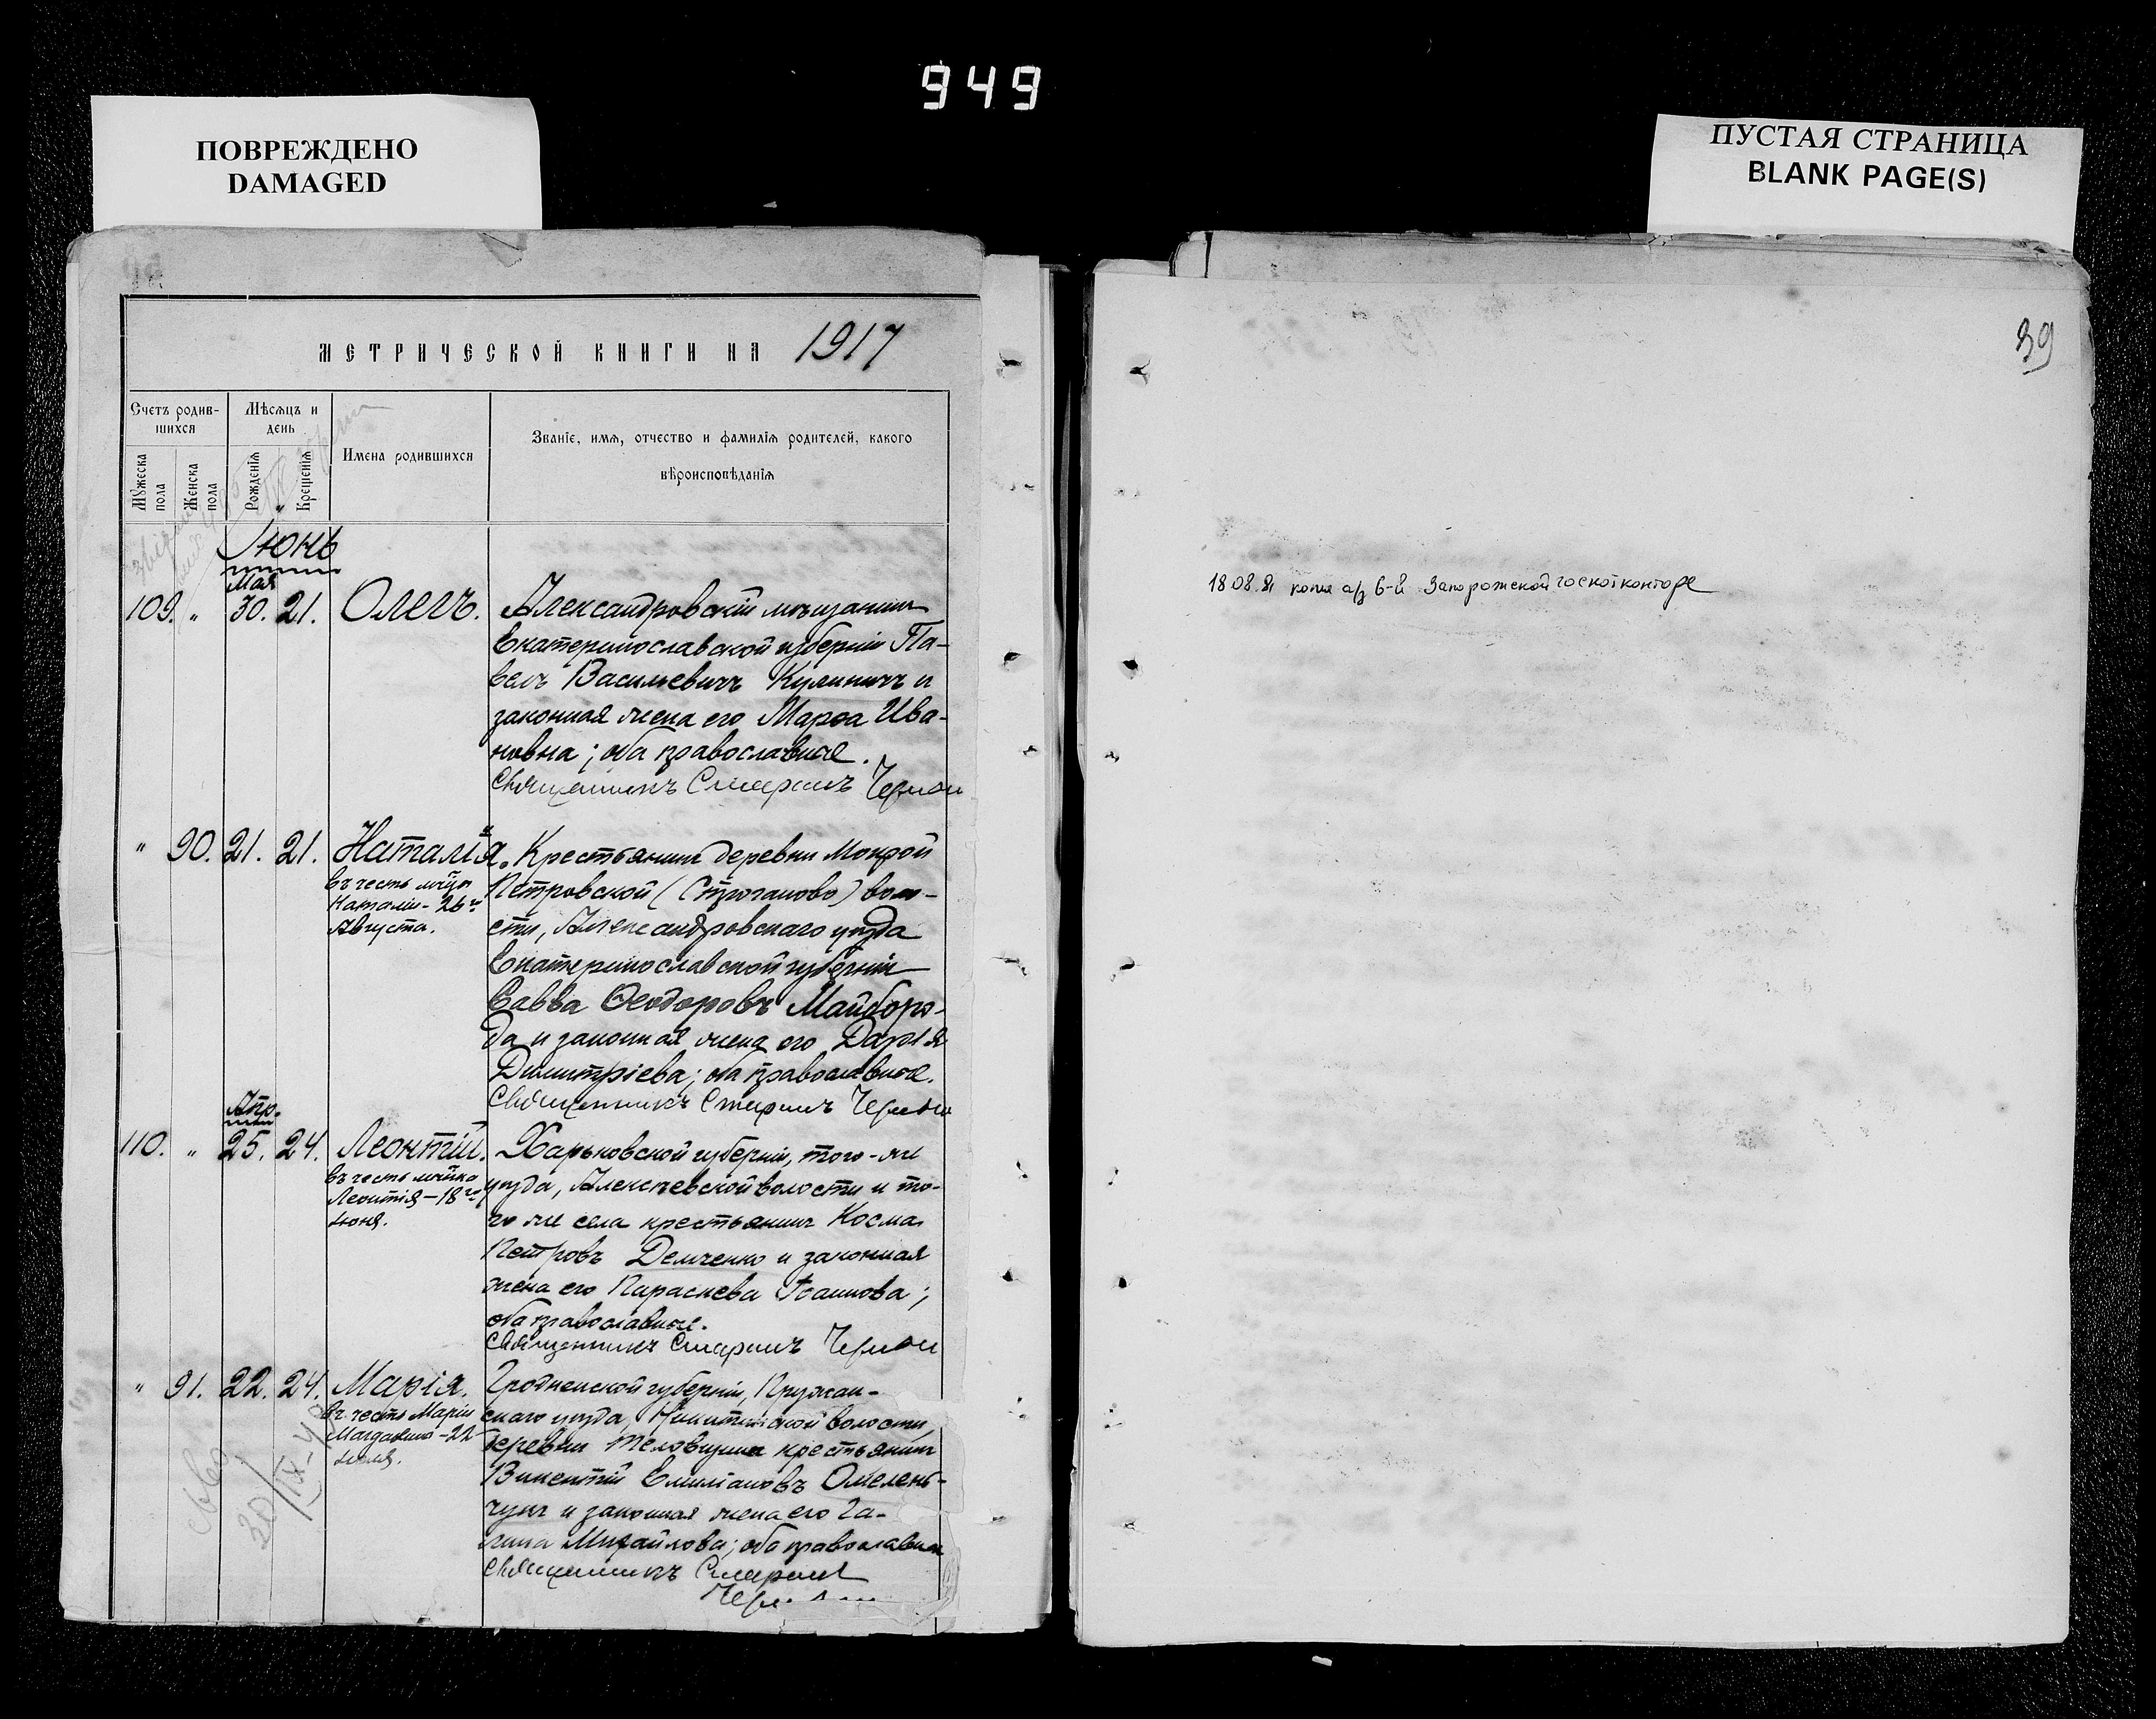 949
ПОВРЕЖДЕНО
DAMAGED
ПУСТАЯ СТРАНИЦА
BLANK PAGE(S)
МЕТРИЧЕСКОЙ КНИГИ НА 1917
Счетъ родив-
шихся
Мѣсяцъ и
день
Имена родившихся
Званіе, имя, отчество и фамилія родителей, какого
вѣроисповѣданія
Мужеска пола
Женска пола
Рожденія
Крещенія
Іюнь
Мая
109. " 30. 21. Олегъ. Александровскій мѣщанинъ
Екатеринославской губерніи Па-
велъ Васильевичъ Кулиничъ и
законная жена его Марѳа Ива-
новна; оба православные.
Священникъ Стефанъ
" 90. 21. 21. Наталія. Крестьянинъ деревни Мокрой
въ честь мчцы
Наталіи - 26го
Августа.
Петровской (Строганово) воло-
сти, Александровскаго уѣзда
Екатеринославской губерніи
Савва Ѳеодоровъ Майборо-
да и законная жена его Дарія
Димитріева; оба православные.
Священникъ Стефанъ
Апр.
110. " 25. 24. Леонтій. Харьковской губерніи, того-же
въ честь мчника
Леонтія - 18го
Іюня.
уѣзда, Алексѣевской волости и то-
го же села крестьянинъ Косма
Петровъ Демченко и законная
жена его Параскева Іоаннова;
оба православные.
Священникъ Стефанъ
" 91. 22. 24. Марія. Гродненской губерніи, Пружан-
въ честь Маріи
Магдалины - 22
Іюля.
скаго уѣзда, волости,
деревни крестьянинъ
Викентій Емиліановъ Омелень-
чукъ и законная жена его Га-
лина Михайлова; оба православные
Священникъ Стефанъ
30/IX-40
39
18 08. копія а/з в 6-й Запорожской госнотконторе